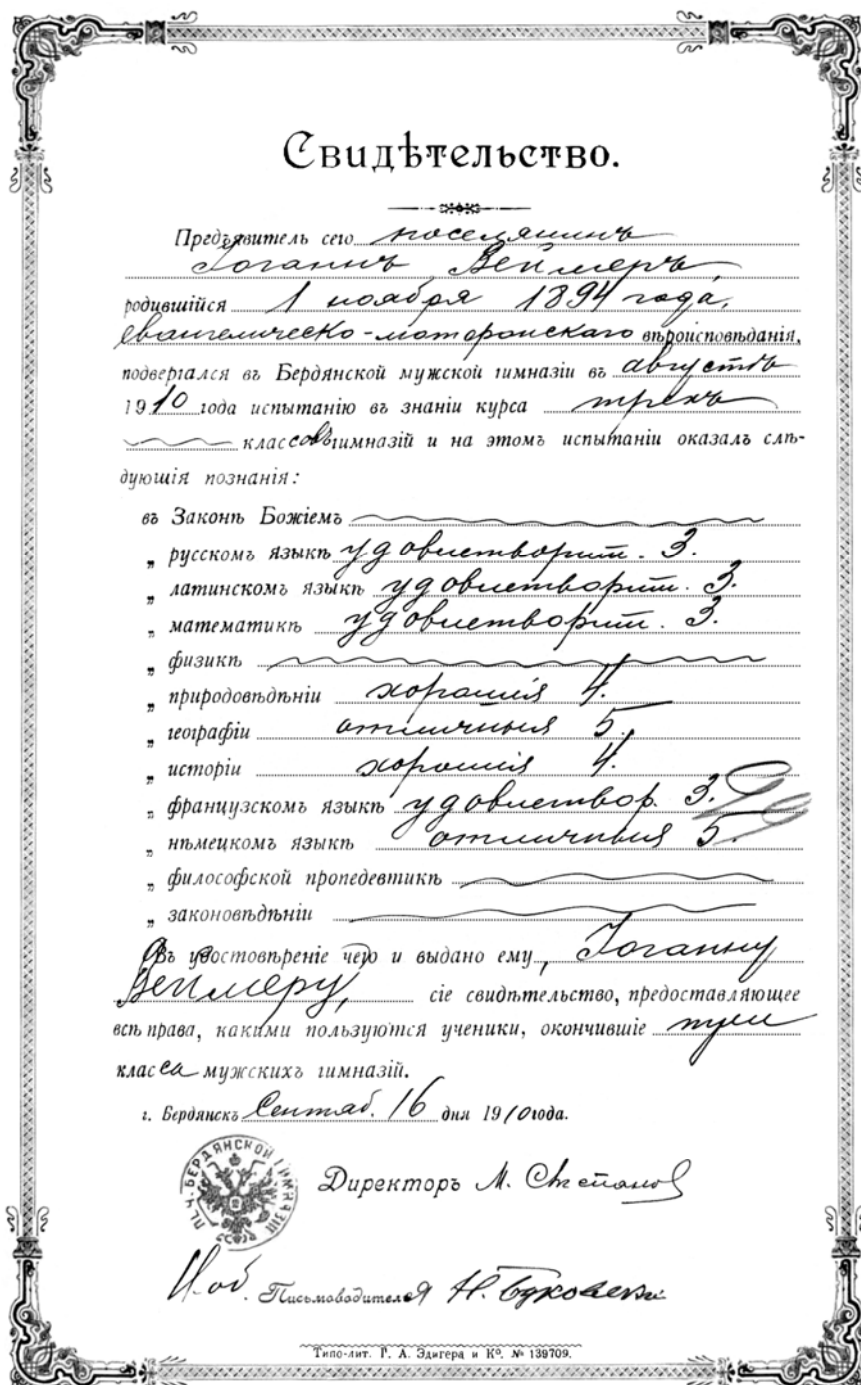 Свидѣтельство.
Предъявитель сего поселянинъ
Іоганнъ Веймеръ,
родившійся 1 ноября 1894 года,
евангелическо-лютеранскаго вѣроисповѣданія,
подвергался въ Бердянской мужской гимназіи въ августѣ
1910 года испытанію въ знаніи курса трехъ
классовъ гимназій и на этомъ испытаніи оказалъ слѣ-
дующія познанія:
въ Законѣ Божіемъ
„ русскомъ языкѣ удовлетворит. 3.
„ латинскомъ языкѣ удовлетворит. 3.
„ математикѣ удовлетворит. 3.
„ физикѣ
„ природовѣдѣніи хорошія 4.
„ географіи отличныя 5.
„ исторіи хорошія 4.
„ французскомъ языкѣ удовлетвор. 3.
„ нѣмецкомъ языкѣ отличныя 5.
„ философской пропедевтикѣ
„ законовѣдѣніи
Въ удостовѣреніе чего и выдано ему, Іоганну
Веймеру, сіе свидѣтельство, предоставляющее
всѣ права, какими пользуются ученики, окончившіе три
класса мужскихъ гимназій.
г. Бердянскъ Сентяб. 16 дня 1910 года.
ПЕЧ. БЕРДЯНСКОЙ ГИМНАЗІИ
Директоръ М. Степанов
И. об. Письмоводителя Н. Буковски
Типо-лит. Г. А. Эдигера и Кº. № 139709.